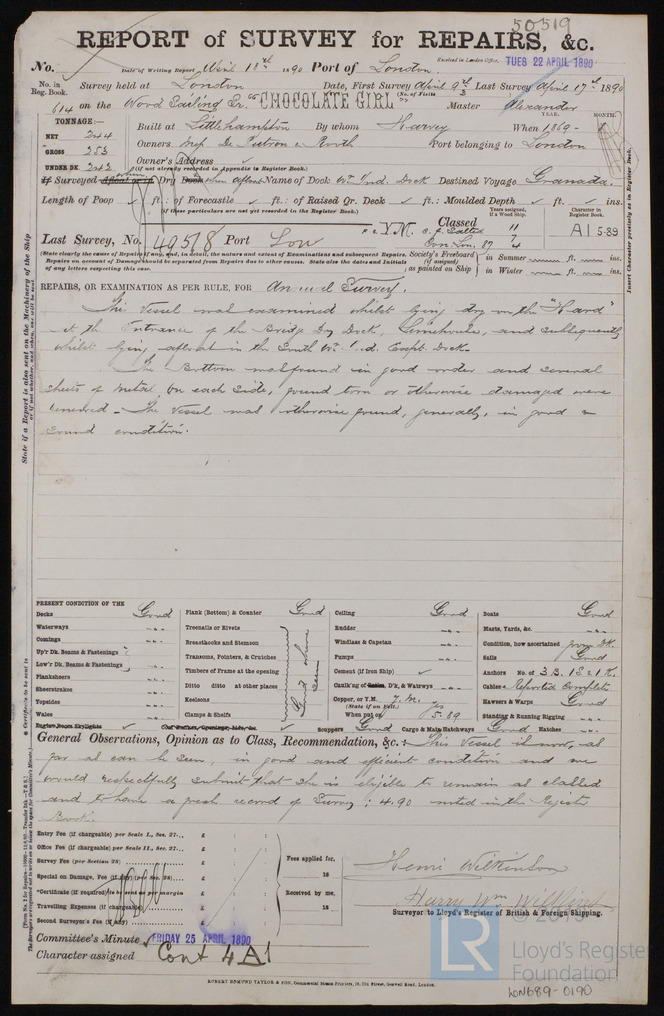 50519
REPORT of SURVEY for REPAIRS, &c.
No. Date of Writing Report April 18th 1890 Port of London. Received in London Office, TUES 22 APRIL 1890
No. in Reg. Book. Survey held at London Date, First Survey April 9th Last Survey April 17th 1890
614 on the Wood Sailing Sr. "CHOCOLATE GIRL" (No. of Visits 3) Master Alexander
TONNAGE:—
YEAR. MONTH.
NET 244
Built at Littlehampton By whom Harvey When 1869-
GROSS 253
Owners Port belonging to London
UNDER DK. 242
Owner's Address
(If not already recorded in Appendix to Register Book.)
If Surveyed Afloat or in Dry Dock Name of Dock W. Ind. Dock Destined Voyage Granada.
Length of Poop ft.: of Forecastle ft.: of Raised Qr. Deck ft.: Moulded Depth ft. ins.
(If these particulars are not yet recorded in the Register Book.)
Classed
Years assigned, if a Wood Ship.
Character in Register Book.
Y.M. c.f. Salted 11
A1 5-89
Last Survey, No. 49518 Port Lon
Con. Lon. 87 4
(State clearly the cause of Repairs if any, and, in detail, the nature and extent of Examinations and subsequent Repairs. Repairs on account of Damage should be separated from Repairs due to other causes. State also the dates and initials of any letters respecting this case.
Society's Freeboard (if assigned) as painted on Ship
in Summer ft. ins.
in Winter ft. ins.
Insert Character precisely as in Register Book.
State if a Report is also sent on the Machinery of the Ship
REPAIRS, OR EXAMINATION AS PER RULE, FOR Annual Survey.
The Vessel was examined whilst lying dry on the "Hard"
at the Entrance of the Bridge Dry Dock, Limehouse, and subsequently
whilst lying afloat in the South W. Ind. Export Dock.
The Bottom was found in good order and several
sheets of metal on each side, found torn or otherwise damaged were
renewed - The Vessel was otherwise found, generally, in good &
sound condition.
PRESENT CONDITION OF THE
Decks Good
Waterways
Comings
Up'r Dk. Beams & Fastenings
Low'r Dk. Beams & Fastenings
Planksheers
Sheerstrakes
Topsides
Wales
Engine Room Skylights
Plank (Bottom) & Counter Good
Treenails or Rivets
Breasthooks and Stemson
Transoms, Pointers, & Crutches
Timbers of Frame at the opening
Ditto ditto at other places
Keelsons
Clamps & Shelfs
Good where seen
Ceiling Good
Rudder
Windlass & Capstan
Pumps
Cement (if Iron Ship)
Caulk'ng of D'k, & Watrwys
Copper, or Y.M. Y.M.
(State if on Felt.)
When put on 5.89
Scuppers Good Cargo & Main Hatchways Good Hatches
Boats Good
Masts, Yards, &c.
Condition, how ascertained from Dk.
Sails Good
Anchors No. of 3 B. 1 S. & 1 K.
Cables Reported Complete
Hawsers & Warps Good
Standing & Running Rigging
General Observations, Opinion as to Class, Recommendation, &c.: This Vessel is now, as
far as can be seen, in good and efficient condition and we
would respectfully submit that she is eligible to remain as classed
and to have a fresh record of Survey: 4.90 noted in the Register
Book.
Entry Fee (if chargeable) per Scale I., Sec. 27... £ : :
Office Fee (if chargeable) per Scale II., Sec. 27... £ : :
Survey Fee (per Section 28) £ : :
Special on Damage, Fee (if any) (per Sec. 28) £ : :
*Certificate (if required) to be sent as per margin
Travelling Expenses (if chargeable) £ : :
Second Surveyor's Fee (if any) £ : :
Fees applied for,
18
Received by me,
18
Henri Wilkinson
Harry Wm
Surveyor to Lloyd's Register of British & Foreign Shipping.
Committee's Minute FRIDAY 25 APRIL 1890
Character assigned Cont 4 A1
ROBERT EDMUND TAYLOR & SON, Commercial Steam Printers, 19, Old Street, Goswell Road, London.
LR
Lloyd's Register
Foundation
LON689-0190